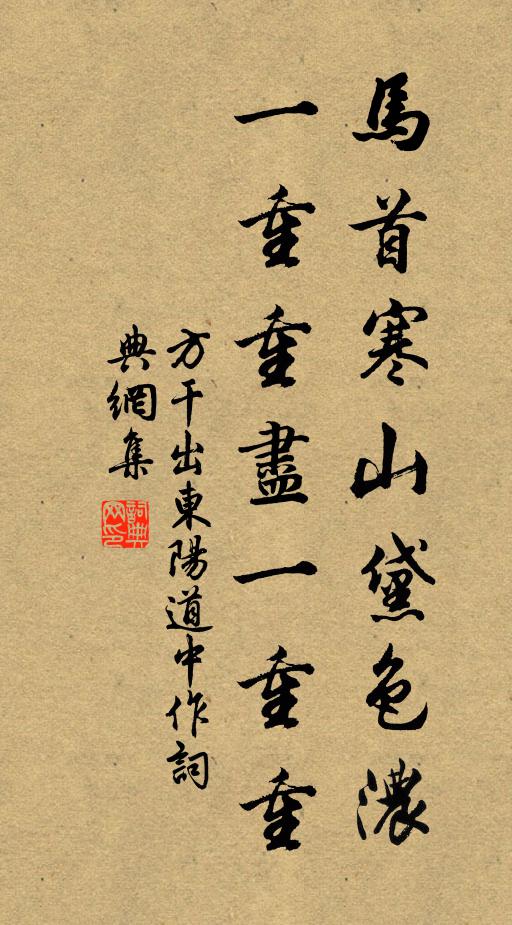 馬首寒山黛色濃
一重重盡一重重
方干出東陽道中作詞
典網集
詞典
网印